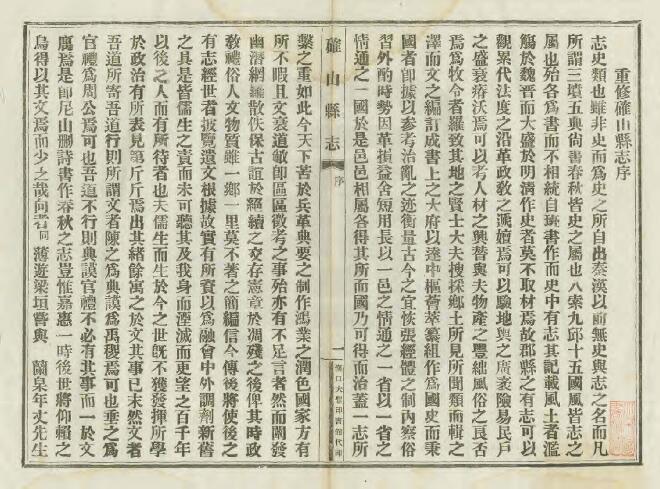 重修確山縣志序
志史類也雖非史而為史之所自出秦漢以前無史與志之名而凡
所謂三墳五典尚書春秋皆史之屬也八索九邱十五國風皆志之
屬也殆各為書而不相統自班書作而史中有志其記載風土者濫
觴於魏晉而大盛於明清作史者莫不取材焉故郡縣之有志可以
觀累代法度之沿革政敎之遞嬗焉可以驗地輿之廣袤險易民戶
之盛衰瘠沃焉可以考人材之興替與夫物產之豐絀風俗之良否
焉為牧令者羅致其地之賢士大夫搜採鄉土所見所聞類而輯之
澤而文之編訂成書上之大府以達中樞薈萃纂組作為國史而秉
國者卽據以參考治亂之迹衡量古今之宜恢張經體之制內察俗
習外酌時勢因革損益舍短用長以一邑之情通之一省以一省之
情通之一國於是邑邑相屬各得其所而國乃可得而治蓋一志所
繫之重如此今天下苦於兵革典要之制作鴻業之潤色國家方有
所不暇且文衰道敝卽區區徵考之事殆亦有不足言者然而闡發
幽潛網羅散佚保古誼於絕續之交存憲章於凋殘之後俾其時政
敎禮俗人文物質雖一鄉一里莫不著之簡編信今傳後將使後之
有志經世者披覽遺文根據故實有所資以為融會中外調劑新舊
之具是皆儒生之責而未可聽其及我身而湮滅而更望之百千年
以後之人而有所待者也夫儒生而生於今之世旣不獲發揮所學
於政治有所表見第斤斤焉出其緒餘寓之於文其事已末然文者
吾道所寄吾道行則所謂文者陳之為典謨為禹稷焉可也垂之為
官禮為周公焉可也吾道不行則典謨官禮不必有其事而一於文
寓焉是卽尼山删詩書作春秋之志豈惟嘉惠一時後世將仰賴之
烏得以其文焉而少之哉向者同　薄遊梁垣嘗與　蘭泉年丈先生
確山縣志
序
一
漢口大聖印書館代印